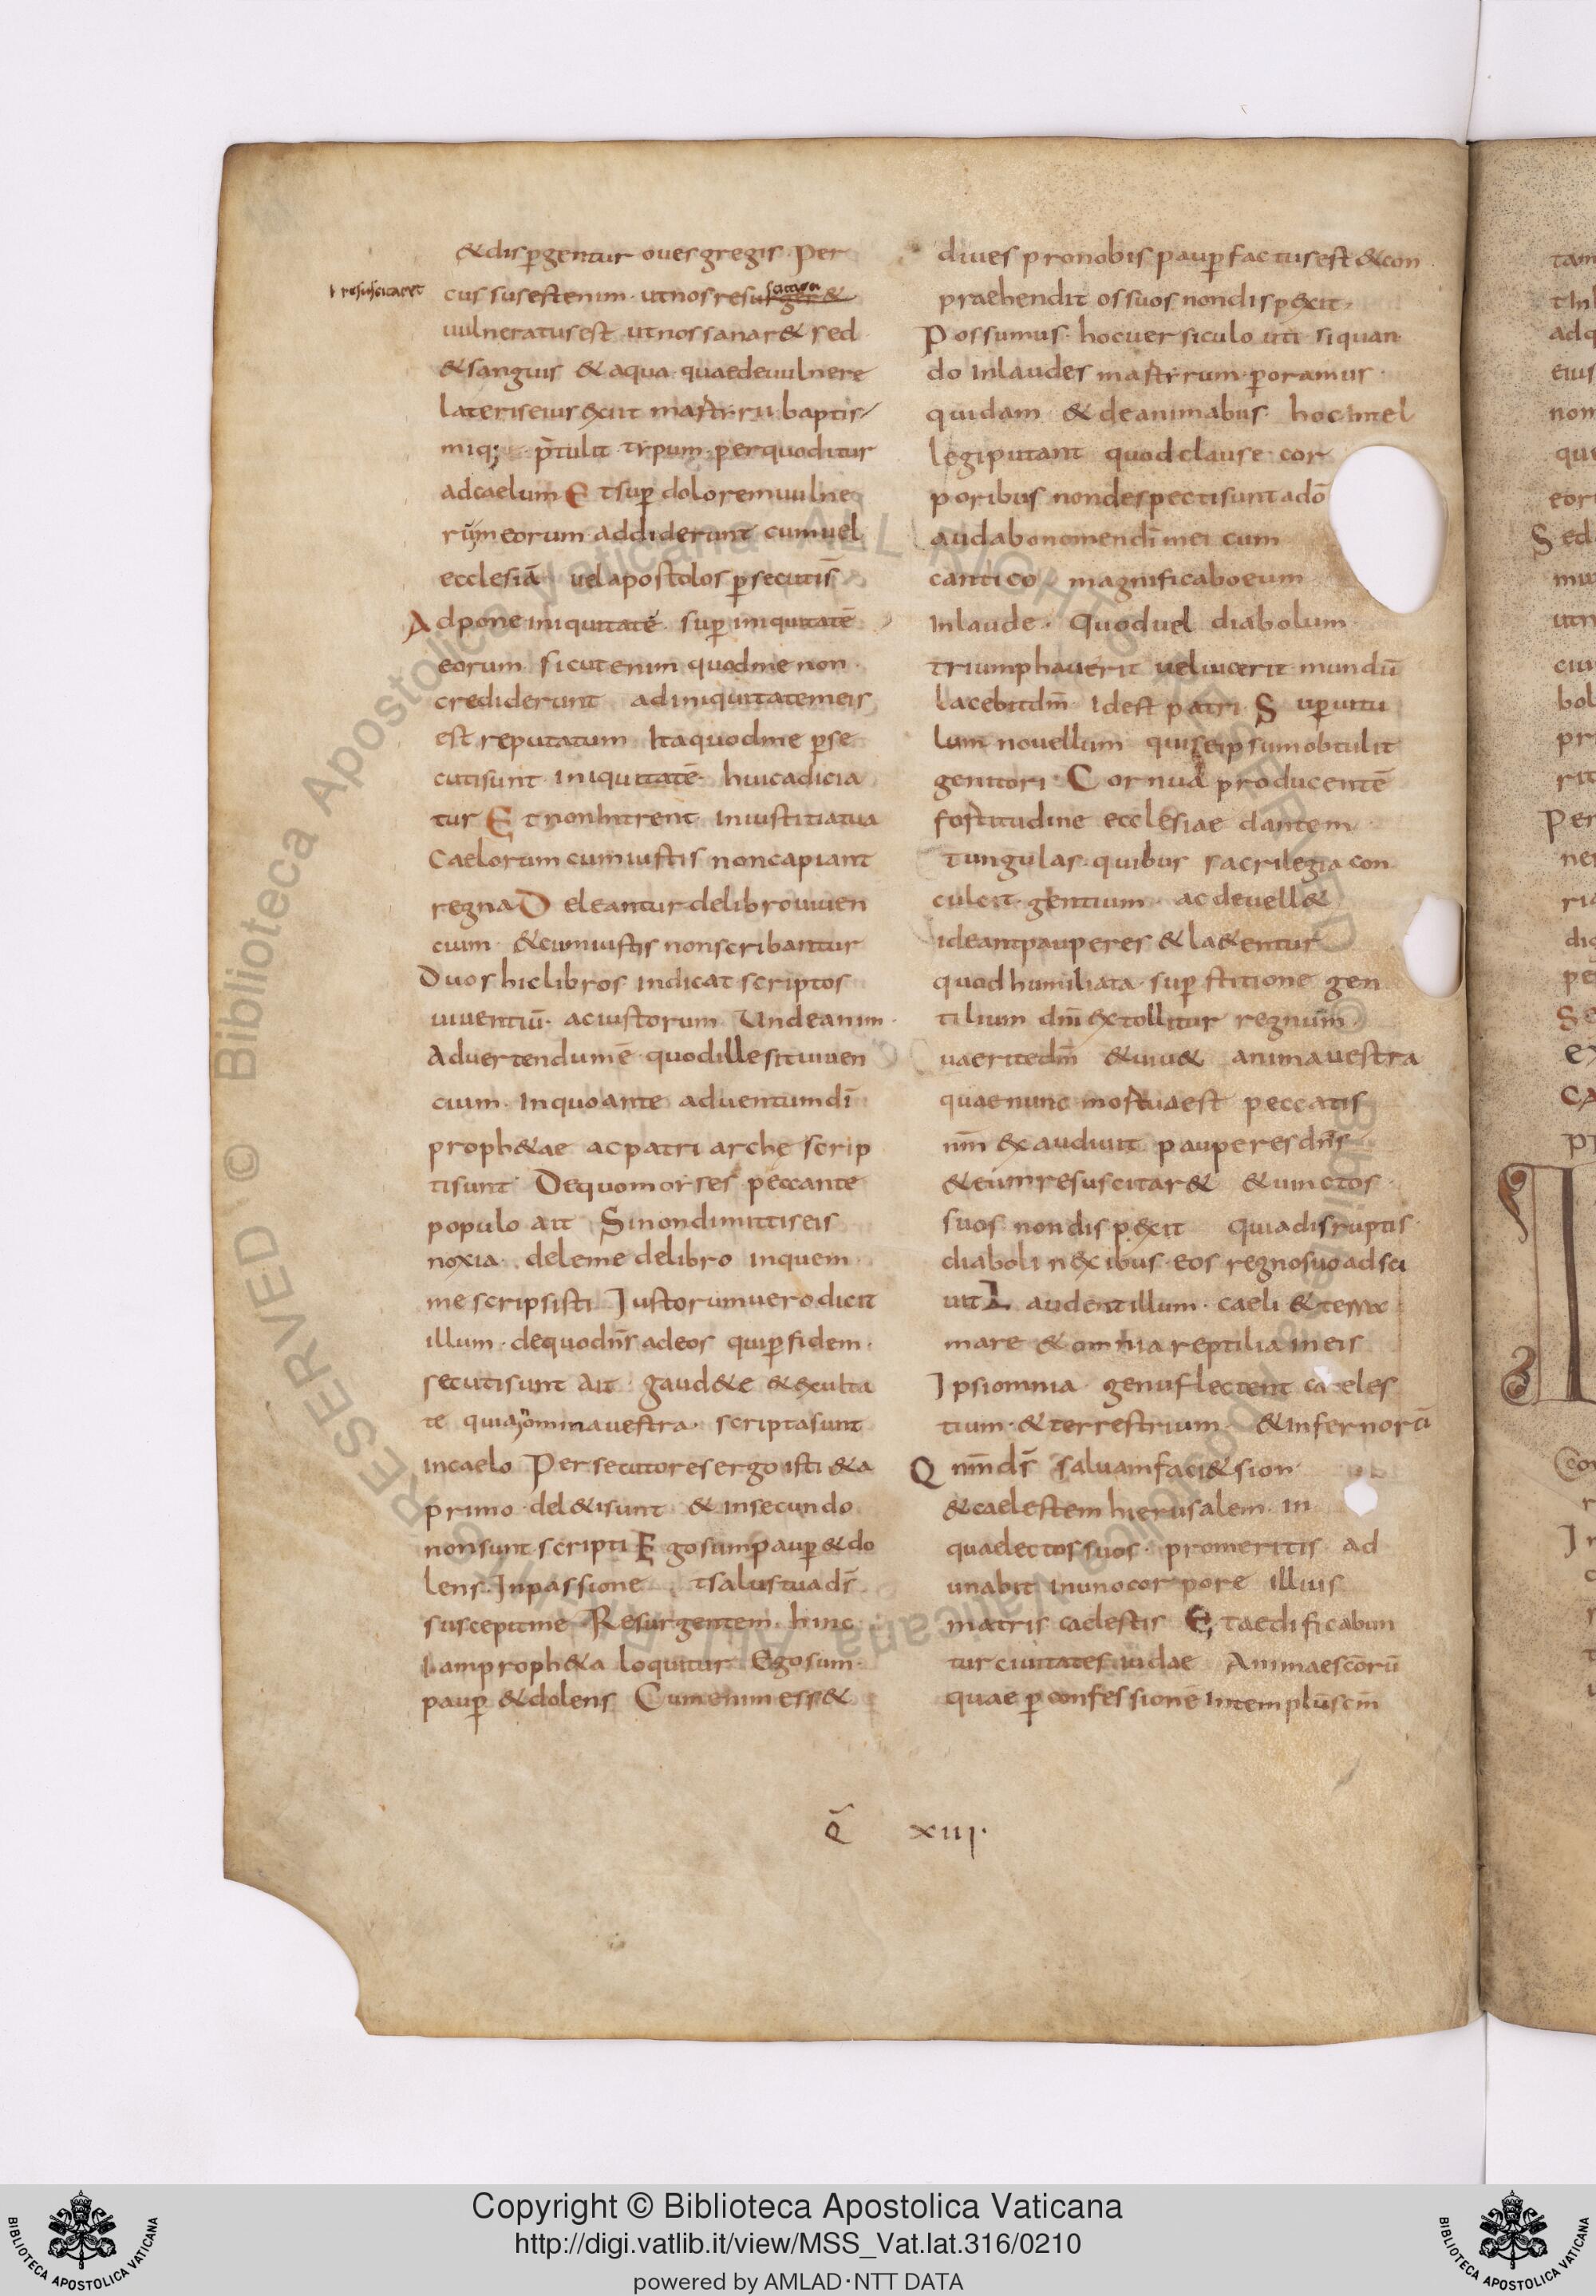 &dispgentur oues gregis. Per
cussus est enim. ut nos resurger&
ł resuscitaret
uulneratus est ut nos sanar& sed
& sanguis & aqua quae de uulnere
lateris eius exiit martyrii baptis
miq; p̄tulit typum. per quod itur
ad caelum Et sup dolorem uulne
rum eorum addiderunt cum uel
ecclesiā uel apostolos psecuti s̄
Adpone iniquitatē sup iniquitatē
eorum sicut enim quod me non
crediderunt ad iniquitatem eis
est reputatum Ita quod me pse
cuti sunt iniquitatē huic adicia
tur Et non intrent in iustitia tua
Caelorum cum iustis non capiant
regna Deleantur de libro uiuen
cium & cum iustis non scribantur
Duos hic libros indicat scriptos
uiuentiū. ac iustorum Unde anim
aduertendum ē quod ille sit uiuen
cium. In quo ante aduentum dn̄i
proph&ae ac patriarche scrip
ti sunt De quo moyses peccante
populo ait Si non dimittis eis
noxia. dele me de libro in quem
me scripsisti Iustorum uero dicit
illum. de quo dn̄s ad eos qui p fidem
secuti sunt ait gaud&e & exulta
te quia nomina uestra. scripta sunt
in caelo Persecutores ergo isti & a
primo del&i sunt & in secundo
non sunt scripti Ego sum paup & do
lens In passione t salus tua ds̄
suscepit me Resurgentem. hinc
Iam proph&a loquitur Ego sum
paup & dolens Cum enim ess&
diues pro nobis paup factus est & con
praehendit os suos non dispexit
Possumus hoc uersiculo uti si quan
do in laudes martyrum poramus
quidam & de animabus hoc intel
legi putant quod clause cor
poribus non despecti sunt a dō
audabo nomen dī mei cum
cantico magnificabo eum
In laude. Quod uel diabolum
triumphauerit uel uicerit mundū
lacebit dm̄ Id est patri Sup uitu
lum nouellum qui seipsum obtulit
genitori Cornua producentē
fortitudine ecclesiae dantem
t ungulas quibus sacrilegia con
culcit gentium ac deuell&
ideant pauperes & la&entur
quod humiliata supstitione gen
tilium dn̄i extollitur regnum
uaerite dm̄ & uiu& anima uestra
quae nunc mortua est peccatis
nm̄ exaudiuit pauperes dn̄s
& eum resuscitar& & uinctos
suos non dispexit Quia disruptis
diaboli nexibus eos regno suo adsci
uit Laudent illum caeli & terrae
mare & omnia reptilia in eis
Ipsi omnia genu flectent caeles
tium & terrestrium & infernorū
Qnm̄ ds̄ saluam faci& sion
& caelestem hierusalem In
qua electos suos pro meritis ad
unabit in uno corpore illius
matris caelestis Et aedificabun
tur ciuitates iudae Animae sc̄orū
quae p confessionē in templū sc̄m
Q̄ XIII.
Copyright © Biblioteca Apostolica Vaticana
http://digi.vatlib.it/view/MSS_Vat.lat.316/0210
powered by AMLAD·NTT DATA